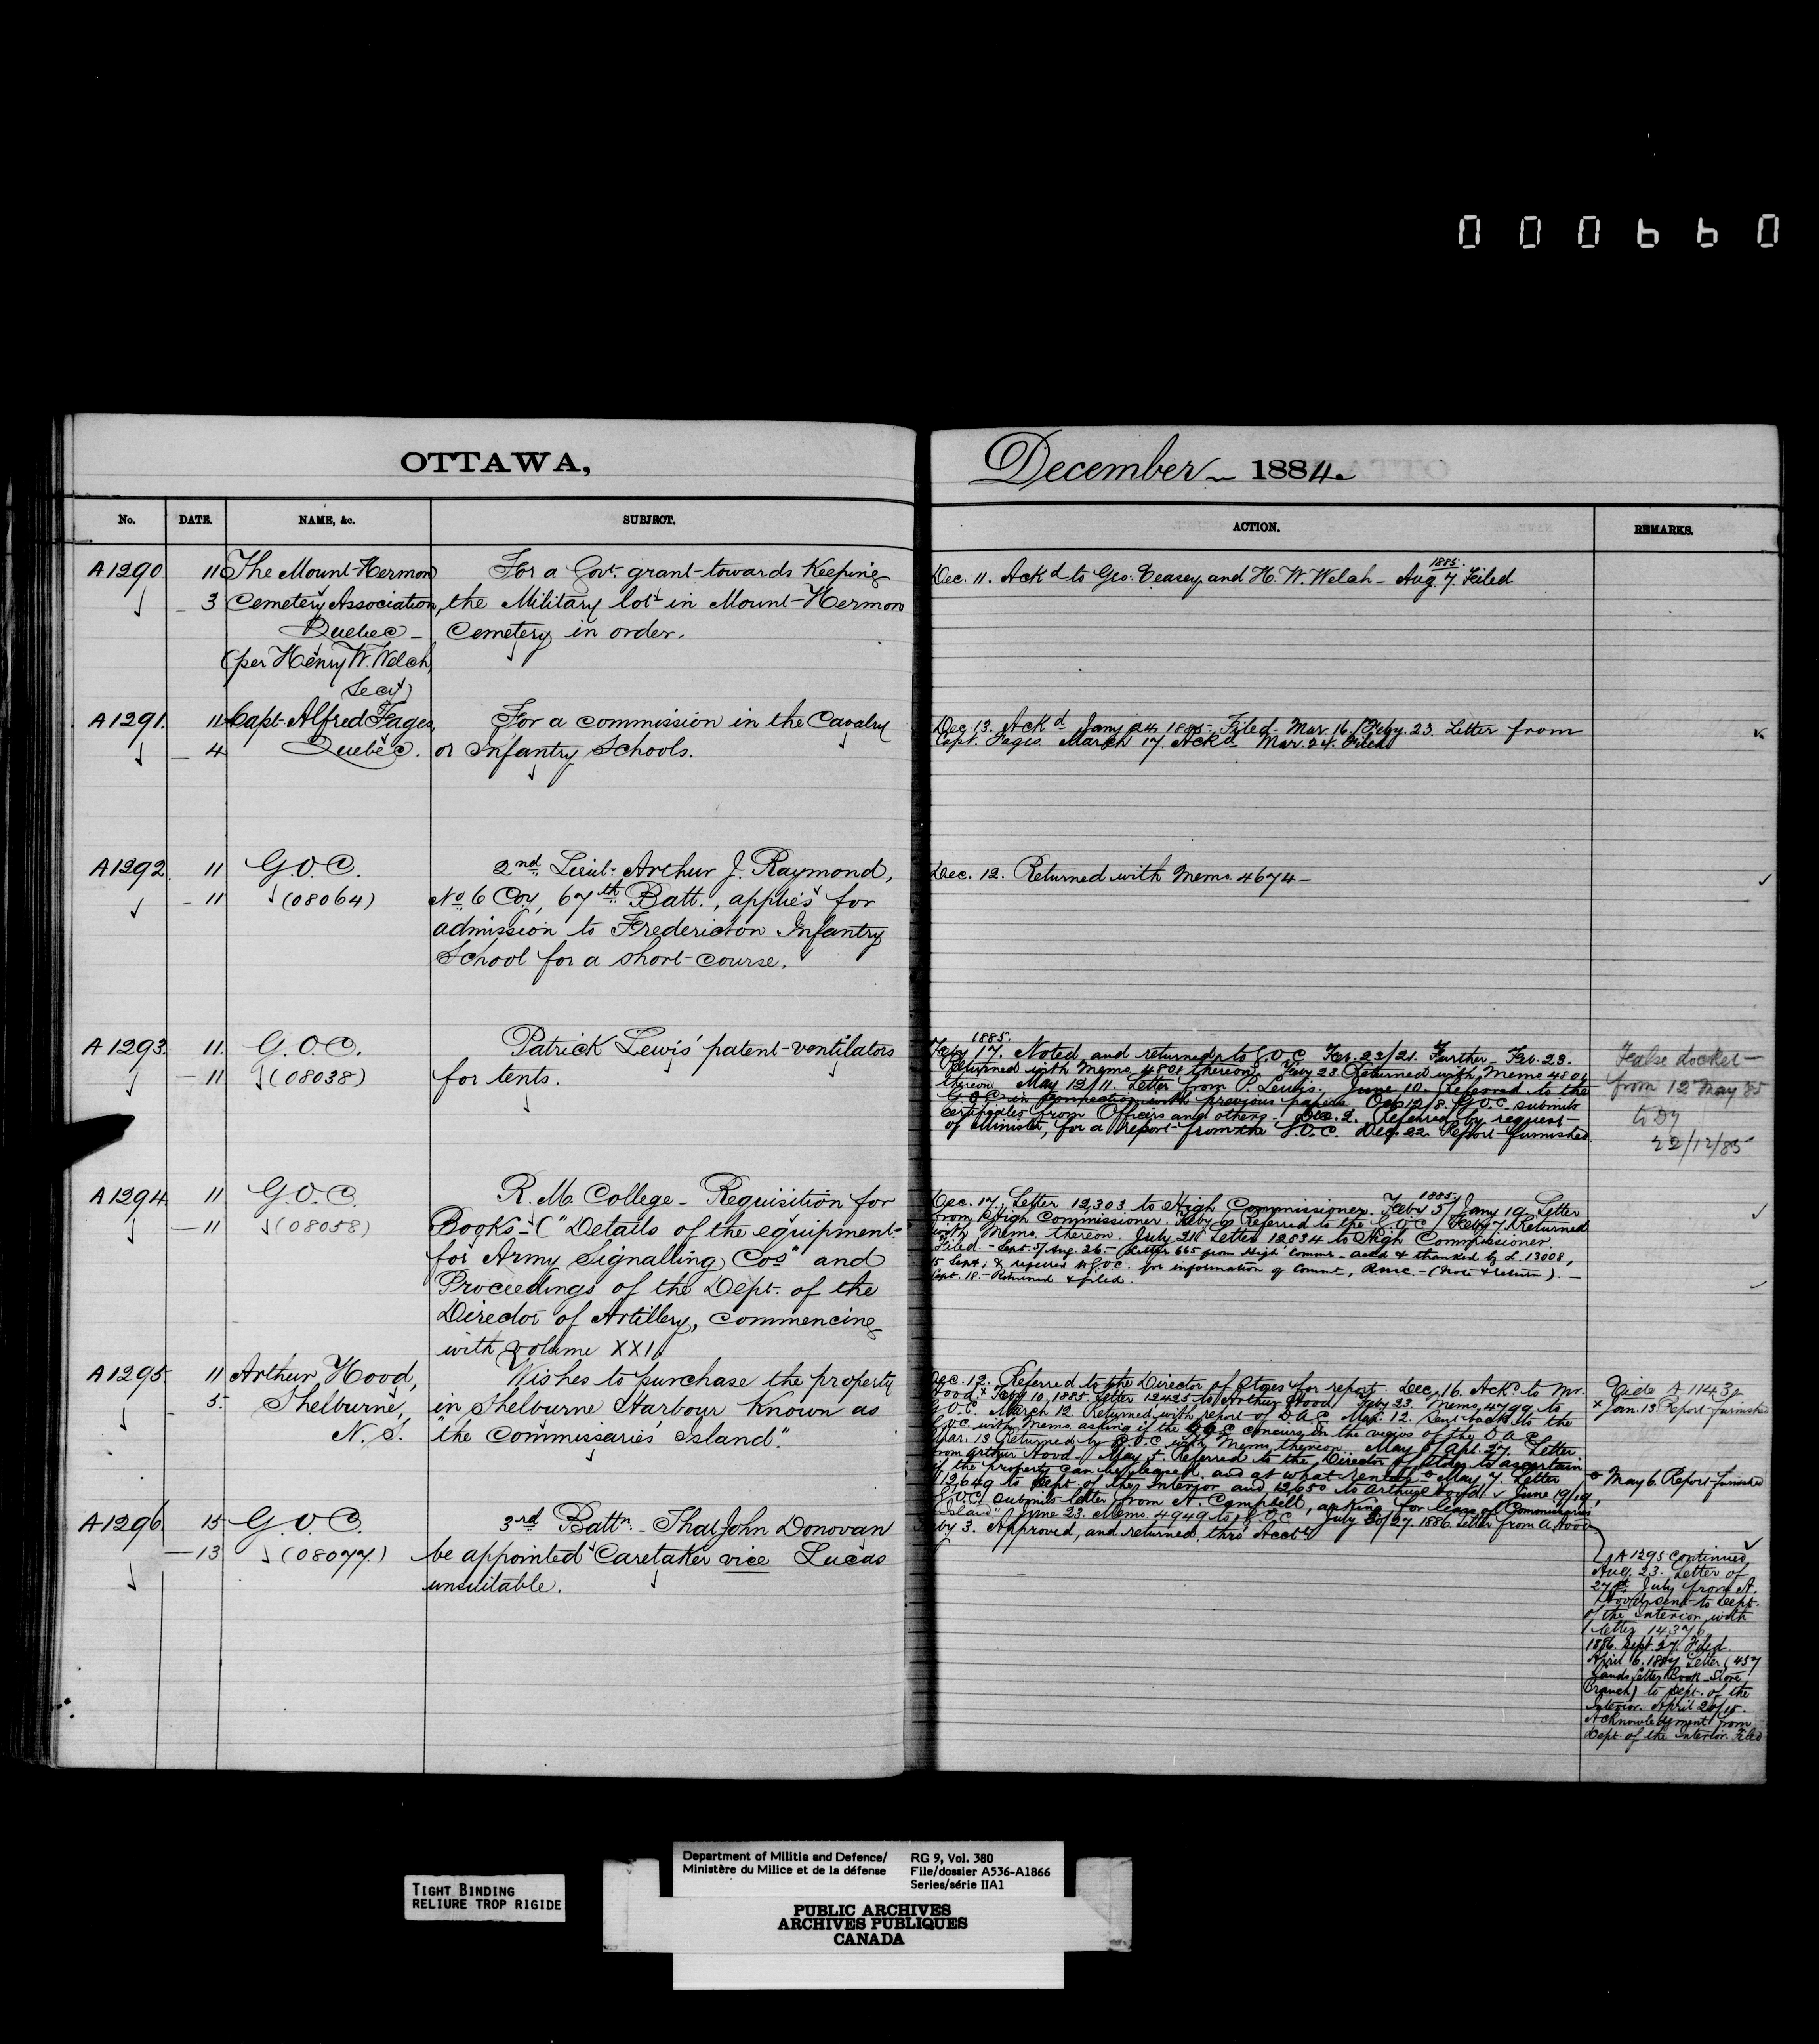 000660
OTTAWA,
December 1884.
No. DATE. NAME, &c. SUBJECT.
ACTION. REMARKS.
A1290 11 The Mount-Hermon For a Govt. grant towards Keeping
3 Cemetery Association, the Military lots in Mount-Hermon
Quebec - Cemetery in order.
(per Henry W. Welch,
Secy)
1885.
Dec. 11. Ackd to Geo. Veasey and H. W. Welch - Aug. 7. Filed
A1291. 11 Capt. Alfred Fages, For a commission in the Cavalry
4 Quebec. or Infantry Schools.
Dec. 13. Ackd Jany 24 1885. Filed - Mar. 16./Feby. 23. Letter from
Capt. Fages. March 17. Ackd Mar. 24. Filed
A1292. 11 G.O.C. 2nd Lieut. Arthur J. Raymond,
11 (08064) No. 6 Coy, 67th Batt., applies for
admission to Fredericton Infantry
School for a short-course.
Dec. 12. Returned with Memo. 4674 -
A1293. 11. G.O.C. Patrick Lewis' patent-ventilators
11 (08038) for tents.
1885.
Feby 17. Noted and returned to G.O.C. Feb. 23/21. Further Feb. 23.
Returned with Memo 4801 thereon. Feby 23. Returned with Memo 4801
thereon May 12/11. Letter from P. Lewis. June 10. Referred to the
G.O.C. in connection with previous papers. Oct. 12/8. G.O.C. submits
Certificates from Officers and others. Dec. 2. Referred, by request
of Minister, for a report from the G.O.C. Dec. 22. Report furnished
False docket -
from 12 May 85
to
22/12/85
A1294 11 G.O.C. R. M. College - Requisition for
11 (08058) Books - ("Details of the equipment
for Army Signalling Cos" and
Proceedings of the Dept. of the
Director of Artillery, commencing
with volume XXI.
1885
Dec. 17. Letter 12,303 to High Commissioner. Feby 5/Jany 19. Letter
from High Commissioner. Feby 6 Referred to the G.O.C. Feby 7. Returned
with Memo. thereon. July 21st Letter 12834 to High Commissioner.
Filed. - Sept. 5/Aug. 26. - Letter 665 from High Commr - ackd & thanked by L. 13008,
15 Sept; & referred to G.O.C. for information of Commt, R.M.C. - (Note & return). -
Sept. 18. - Returned & filed.
A1295 11 Arthur Hood, Wishes to purchase the property
5. Shelburne, in Shelburne Harbour known as
N. S. "the Commissaries' Island".
Dec. 12. Referred to the Director of Stores for report. Dec. 16. Ackd to Mr.
Hood. x Feby 10, 1885. Letter 12425 to Arthur Hood Feby 23. Memo. 4799 to
G.O.C. March 12. Returned with report of D.A.G. Mar. 12. Sent back to the
G.O.C. with Memo. asking if the G.O.C. concurs in the views of the D.A.G.
Mar. 13. Returned by G.O.C. with Memo thereon. May 5/Apl. 27. Letter
from Arthur Hood. May 5. Referred to the Director of Stores to ascertain
if the property can be leased, and at what rental. o May 7. Letter
12649 to Dept. of the Interior and 12650 to Arthur Hood. June 19/19,
G.O.C. submits letter from A. Campbell, asking for lease of "Commissaries'
Island" June 23. Memo. 4949 to G.O.C. July 30/27. 1886. Letter from A. Hood
Vide A 1143
x Jan. 13. Report furnished
o May 6. Report furnished
A1296 15 G.O.C. 3rd Battn. - That John Donovan
13 (08077) be appointed Caretaker vice Lucas
unsuitable.
3. Approved, and returned thro' Acct.
A1295 continued,
Aug. 23. Letter of
27th July from A.
Hood, sent to Dept.
of the Interior with
letter 14376.
1886. Sept. 27. Filed.
April 6. 1887 Letter (457
Lands Letter Book Store
Branch) to Dept. of the
Interior. April 20/18.
Acknowledgment from
Dept. of the Interior. Filed
TIGHT BINDING
RELIURE TROP RIGIDE
Department of Militia and Defence/
Ministère du Milice et de la défense
RG 9, Vol. 380
File/dossier A536-A1866
Series/série IIA1
PUBLIC ARCHIVES
ARCHIVES PUBLIQUES
CANADA